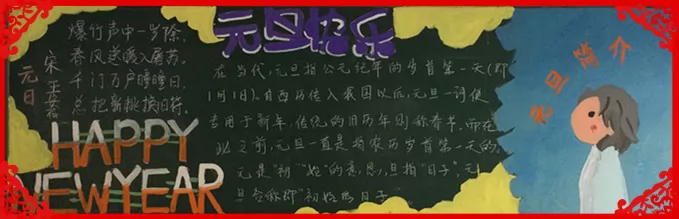 元旦快乐
元日
宋 王安石
爆竹声中一岁除,
春风送暖入屠苏。
千门万户曈曈日,
总把新桃换旧符。
HAPPY
NEWYEAR
在当代,元旦指公元纪年的岁首第一天(即
1月1日)。自西历传入我国以后,元旦一词便
专用于新年,传统的旧历年则称春节。而在
此之前,元旦一直是指农历岁首第一天的。
元是"初""始"的意思,旦指"日子",元
旦合称即"初始的日子"
元旦简介